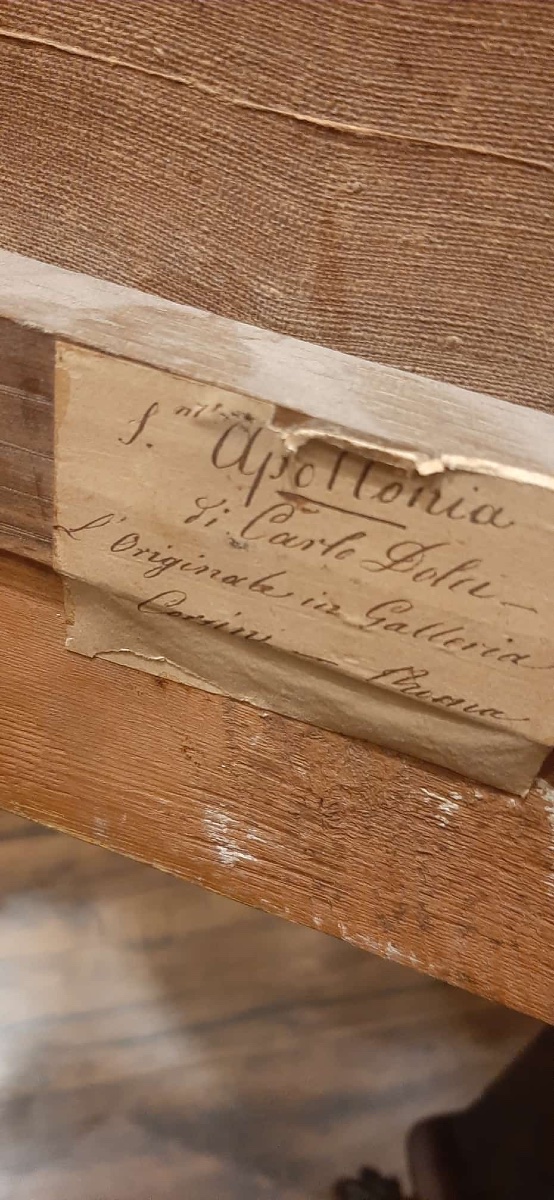 S. Apollonia
di Carlo Dolci
L'Originale in Galleria
Corsini — Roma